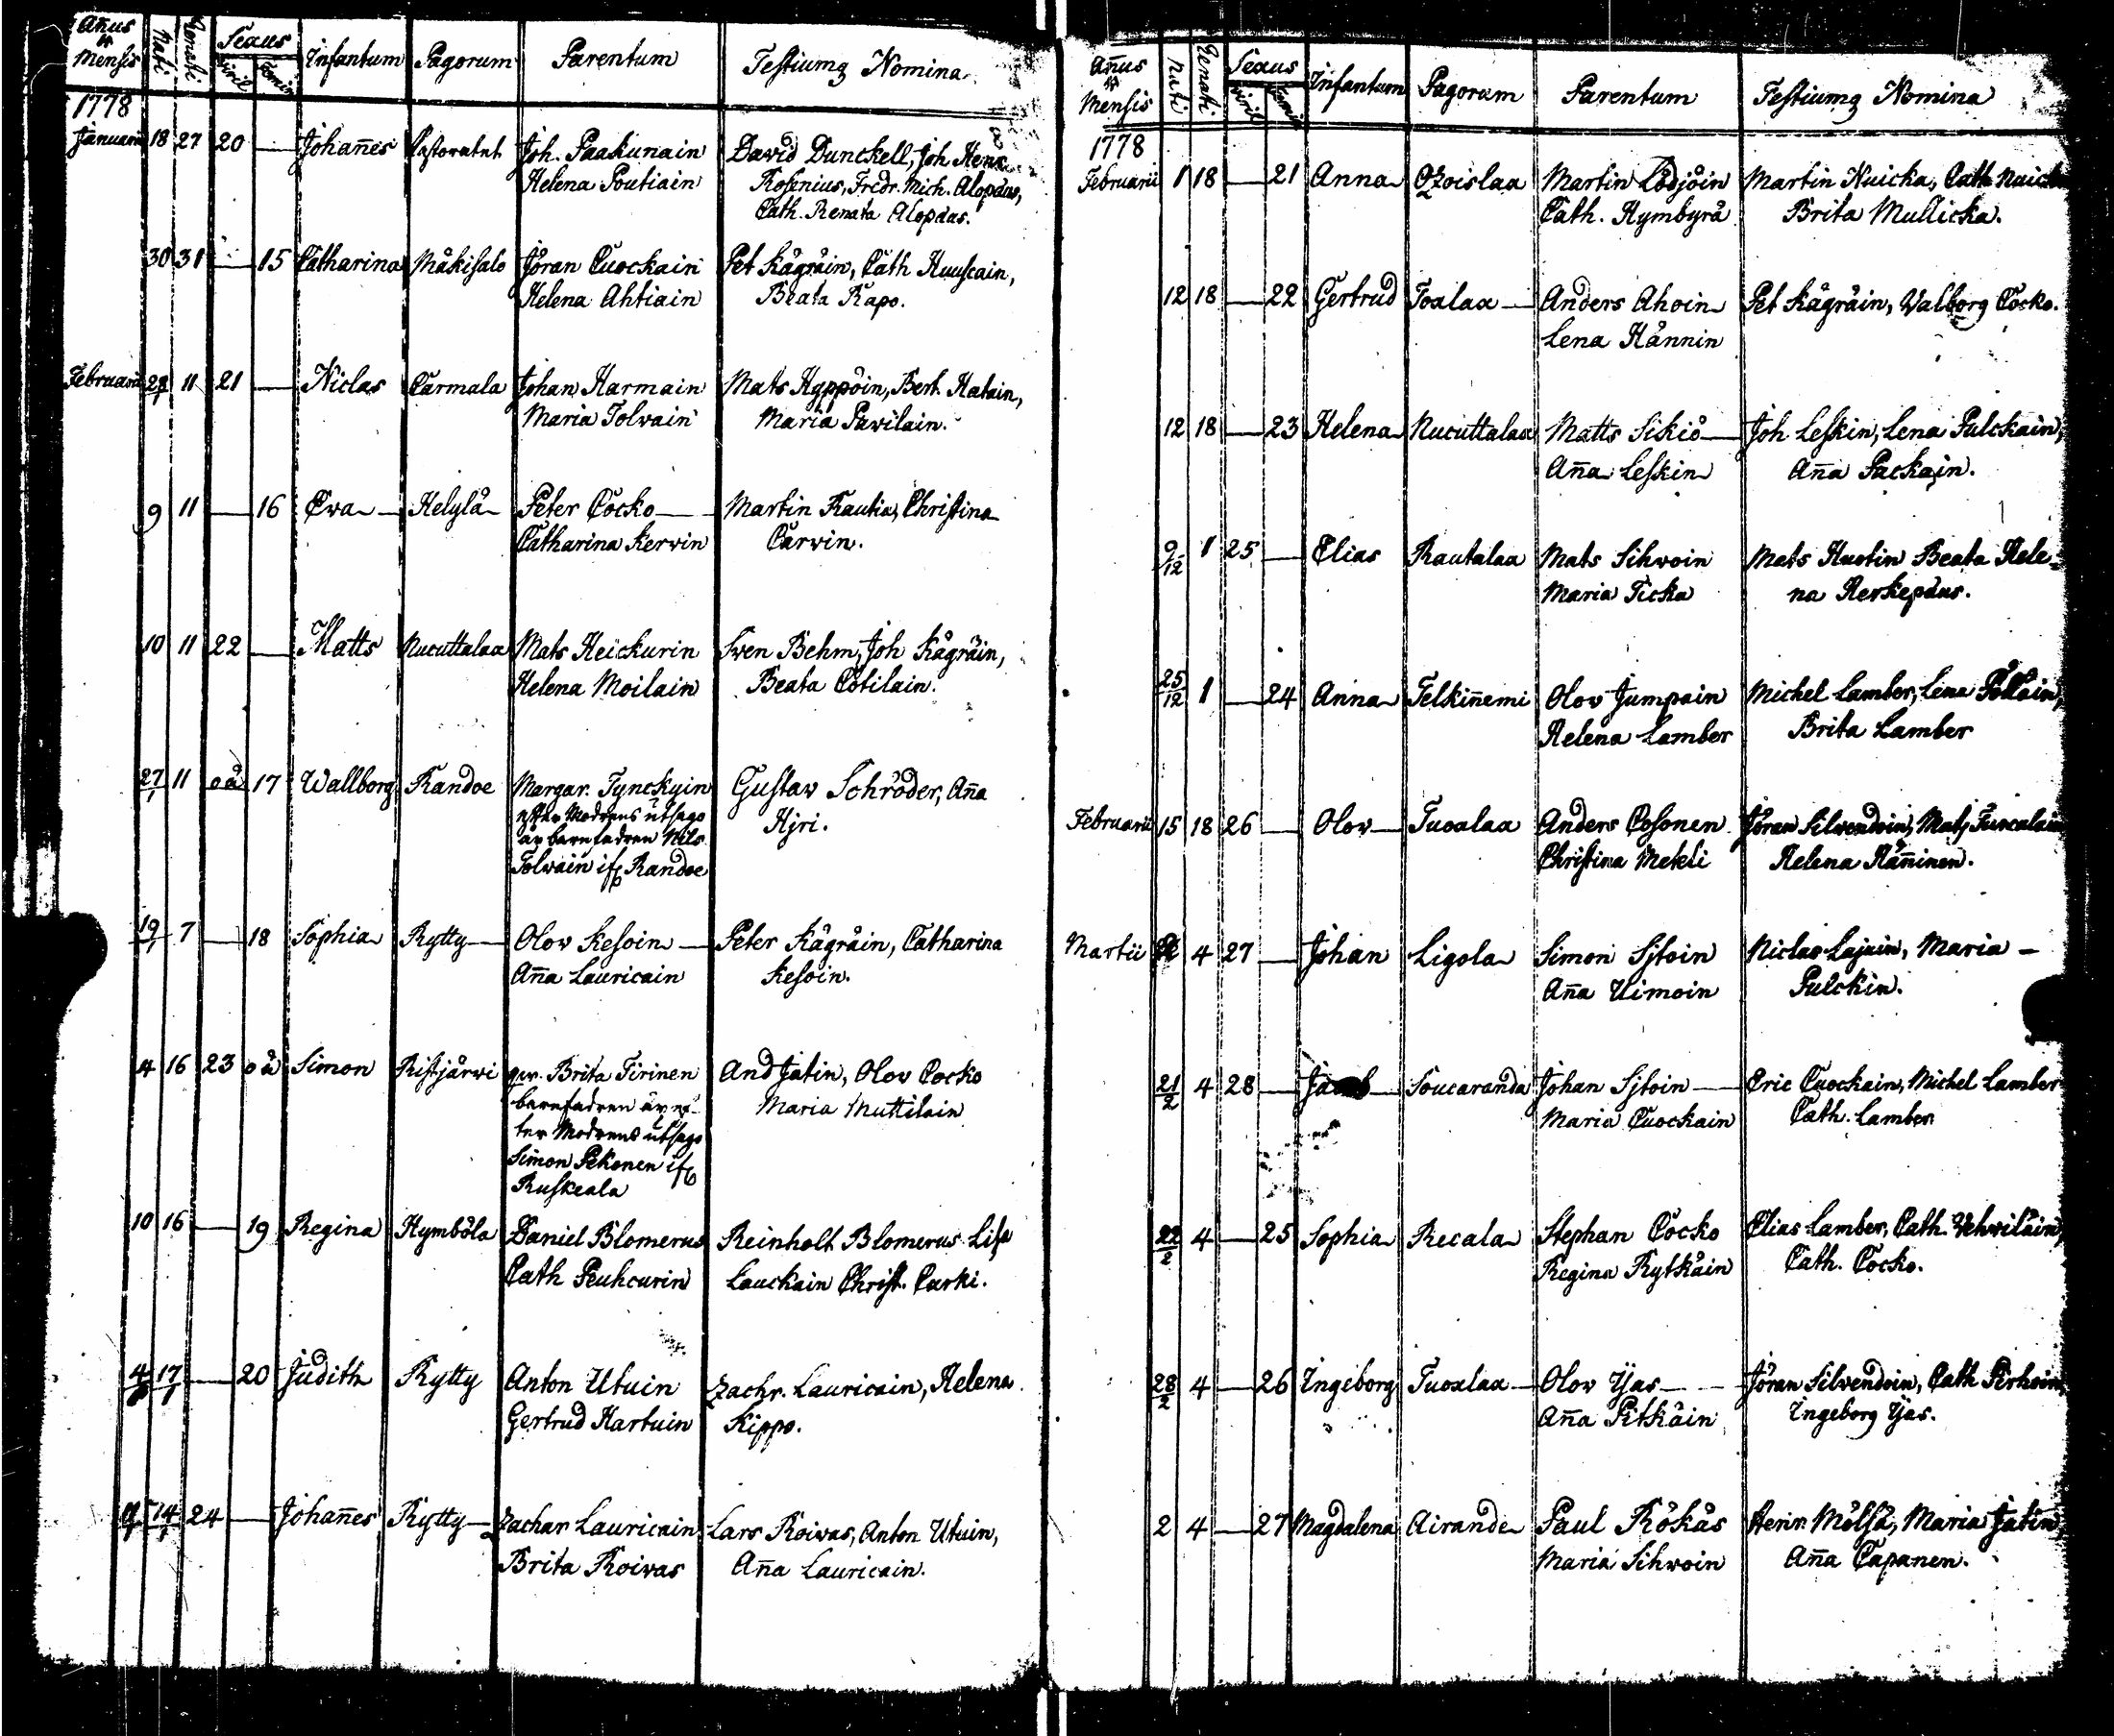 Añus & Mensis Nati Renati Sexus viril femin Infantum Pagorum Parentum Testiumq Nomina
1778
Januarii 18 27 20 — Johañes Pastoratet Joh. Paakunain David Dunckell, Joh Henr.
Helena Poutiain Rosenius, Fredr. Mich. Alopæus,
Cath. Renata Alopæus.
30 31 — 15 Catharina Mäkisalo Jöran Cuockain Pet Kägräin, Cath Huuscain,
Helena Ahtiain Beata Rapo.
Februarii 28/1 11 21 — Niclas Carmala Johan Harmain Mats Hyppöin, Bert. Hatain,
Maria Tolvain Maria Pavilain.
9 11 — 16 Eva Helylä Peter Cocko Martin Rautia, Christina
Catharina Kervin Carvin.
10 11 22 — Matts Nucuttalaa Mats Heickurin Sven Behm, Joh Kägräin,
Helena Moilain Beata Cotilain.
27/1 11 oä 17 Wallborg Randoe Margar. Tynckyin Gustav Schröder, Aña
efter Modrens utsago Hjri.
är barnfadren Nils
Tolvain ifr Randoe
19/1 7 — 18 Sophia Rytty Olov Kesoin Peter Kägräin, Catharina
Aña Lauricain Kesoin.
4 16 23 oä Simon Ristjärwi qv. Brita Tirinen And Jatin, Olov Cocko
barnfadren är ef-
Maria Muttilain
ter Modrens utsago
Simon Pekonen ifr
Ruskeala
10 16 — 19 Regina Hymböla Daniel Blomerus Reinholt Blomerus Lisa
Cath Peuhcurin Lauckain Christ. Curki.
17/1 — 20 Judith Rytty Anton Utuin Zachr. Lauricain, Helena
Gertrud Hartuin Kippo.
14/1 24 — Johañes Rytty Zachar Lauricain Lars Roivas, Anton Utuin,
Brita Roivas Aña Lauricain.
Añus & Mensis Nati Renati Sexus viril femin Infantum Pagorum Parentum Testiumq Nomina
1778
Februarii 1 18 — 21 Anna Ozoislaa Martin Lödjöin Martin Nuicka, Cath Nuicka
Cath. Hymbyrä Brita Mullicka.
12 18 — 22 Gertrud Toalaa Anders Ahoin Pet Kägräin, Valborg Cocko.
Lena Hännin
12 18 — 23 Helena Nucuttalaa Matts Sikiö Joh Leskin, Lena Pulckain,
Aña Leskin Aña Packain.
9/12 1 25 — Elias Rautalaa Mats Sihvoin Mats Huotin Beata Hele-
Maria Ticka na Herkepæus.
25/12 1 — 24 Anna Telkiñemi Olov Jumpain Michel Lamber, Lena Pölläin,
Helena Lamber Brita Lamber
Februarii 15 18 26 — Olov Tuoalaa Anders Cosonen Jöran Silvendoin, Mats Turcalain
Christina Mekeli Helena Häñinen.
Martii 4 27 — Johan Ligola Simon Sjtoin Niclas Lajuin, Maria —
Aña Uimoin Pulckin.
21/2 4 28 — Jacob Soucaranda Johan Sjtoin Eric Cuockain, Michel Lamber
Maria Cuockain Cath. Lamber
22/2 4 — 25 Sophia Recala Stephan Cocko Elias Lamber, Cath. Vehviläin,
Regina Rytkäin Cath. Cocko.
28/2 4 — 26 Ingeborg Tuoalaa Olov Yjas Jöran Silvendoin, Cath Pirhoin,
Aña Pitkäin Ingeborg Yjas.
2 4 — 27 Magdalena Airande Paul Rökäs Henr. Mölsä, Maria Jatin,
Maria Sihvoin Aña Capanen.